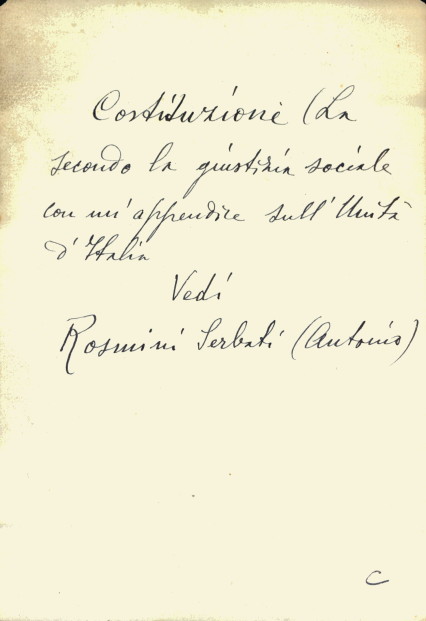 Costituzione (La
secondo la giustizia sociale
con un' appendice sull' Unità
d' Italia
Vedi
Rosmini Serbati (Antonio)
C